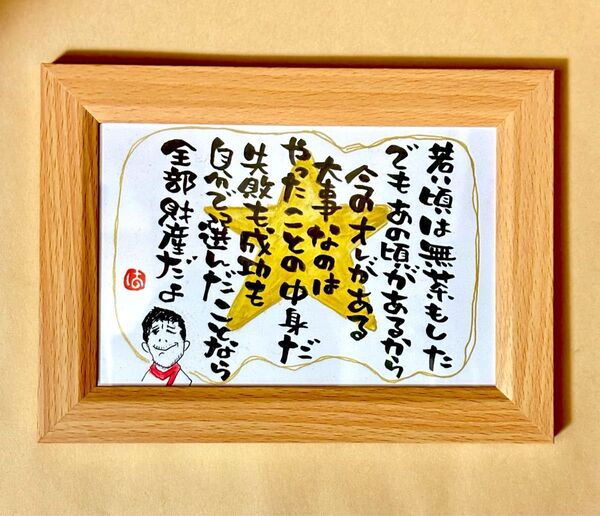 若い頃は無茶もした
でもあの頃があるから
今のオレがある
大事なのは
やったことの中身だ
失敗も成功も
自分で選んだことなら
全部財産だよ
は